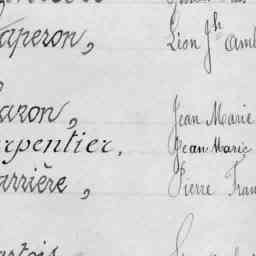 aperon, Léon Jh Amb
azon, Jean Marie
arpentier, Jean Marie
arrière, Pierre Fran